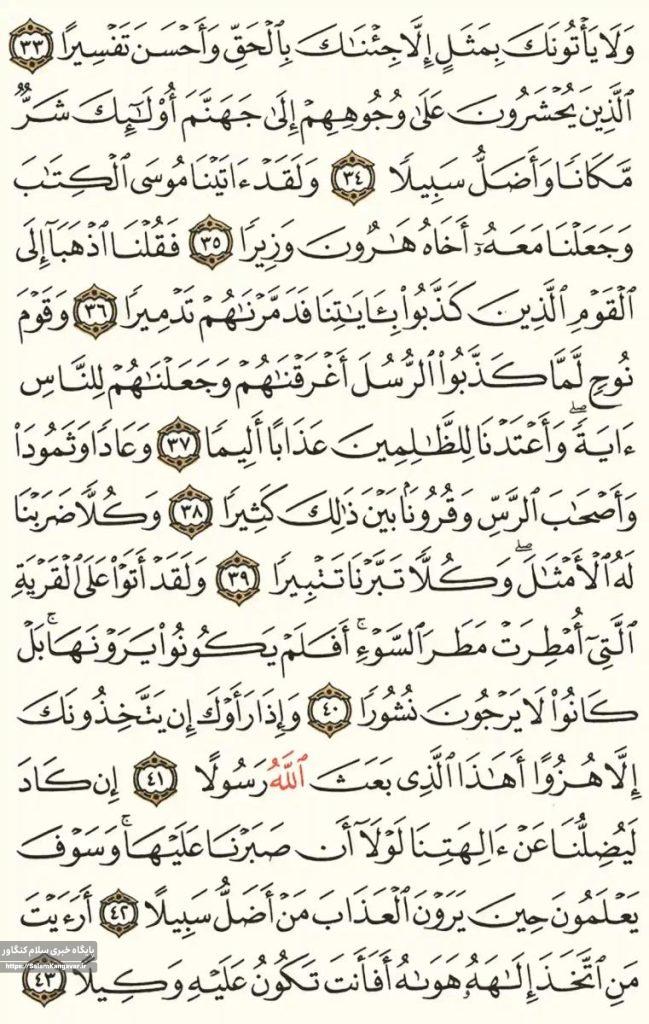 وَلَا يَأْتُونَكَ بِمَثَلٍ إِلَّا جِئْنَـٰكَ بِٱلْحَقِّ وَأَحْسَنَ تَفْسِيرًا ٣٣
ٱلَّذِينَ يُحْشَرُونَ عَلَىٰ وُجُوهِهِمْ إِلَىٰ جَهَنَّمَ أُو۟لَـٰٓئِكَ شَرٌّ
مَّكَانًا وَأَضَلُّ سَبِيلًا ٣٤ وَلَقَدْ ءَاتَيْنَا مُوسَى ٱلْكِتَـٰبَ
وَجَعَلْنَا مَعَهُۥٓ أَخَاهُ هَـٰرُونَ وَزِيرًا ٣٥ فَقُلْنَا ٱذْهَبَآ إِلَى
ٱلْقَوْمِ ٱلَّذِينَ كَذَّبُوا۟ بِـَٔايَـٰتِنَا فَدَمَّرْنَـٰهُمْ تَدْمِيرًا ٣٦ وَقَوْمَ
نُوحٍ لَّمَّا كَذَّبُوا۟ ٱلرُّسُلَ أَغْرَقْنَـٰهُمْ وَجَعَلْنَـٰهُمْ لِلنَّاسِ
ءَايَةً ۖ وَأَعْتَدْنَا لِلظَّـٰلِمِينَ عَذَابًا أَلِيمًا ٣٧ وَعَادًا وَثَمُودَا۟
وَأَصْحَـٰبَ ٱلرَّسِّ وَقُرُونًۢا بَيْنَ ذَٰلِكَ كَثِيرًا ٣٨ وَكُلًّا ضَرَبْنَا
لَهُ ٱلْأَمْثَـٰلَ ۖ وَكُلًّا تَبَّرْنَا تَتْبِيرًا ٣٩ وَلَقَدْ أَتَوْا۟ عَلَى ٱلْقَرْيَةِ
ٱلَّتِىٓ أُمْطِرَتْ مَطَرَ ٱلسَّوْءِ ۚ أَفَلَمْ يَكُونُوا۟ يَرَوْنَهَا ۚ بَلْ
كَانُوا۟ لَا يَرْجُونَ نُشُورًا ٤٠ وَإِذَا رَأَوْكَ إِن يَتَّخِذُونَكَ
إِلَّا هُزُوًا أَهَـٰذَا ٱلَّذِى بَعَثَ ٱللَّهُ رَسُولًا ٤١ إِن كَادَ
لَيُضِلُّنَا عَنْ ءَالِهَتِنَا لَوْلَآ أَن صَبَرْنَا عَلَيْهَا ۚ وَسَوْفَ
يَعْلَمُونَ حِينَ يَرَوْنَ ٱلْعَذَابَ مَنْ أَضَلُّ سَبِيلًا ٤٢ أَرَءَيْتَ
مَنِ ٱتَّخَذَ إِلَـٰهَهُۥ هَوَىٰهُ أَفَأَنتَ تَكُونُ عَلَيْهِ وَكِيلًا ٤٣
پایگاه خبری سلام کنگاور
https://SalamKangavar.ir